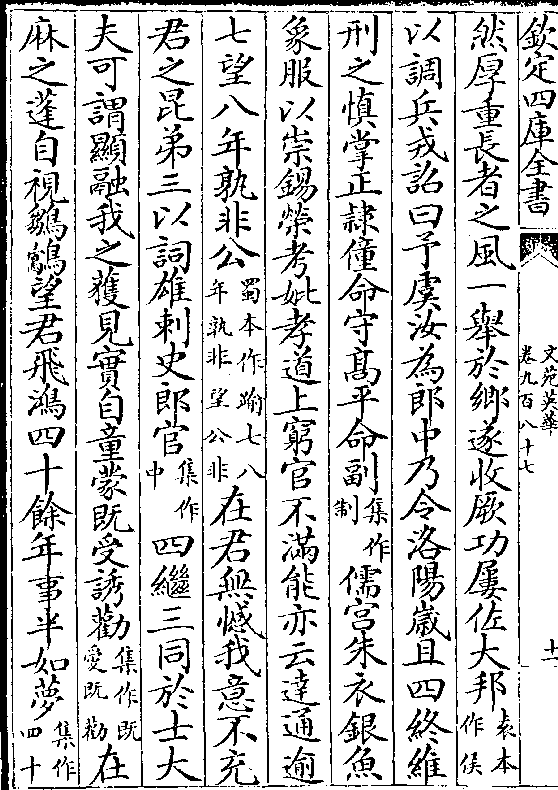 欽定四庫全書
文苑英華
卷九百八十七
十一
然厚重長者之風一舉於鄉遂收厥功屢佐大邦袁本作侯
以調兵戎詔曰予虞汝為郎中乃令洛陽歲且四終維
刑之慎掌正隸僮命守髙平命副集作制儒宮朱衣銀魚
象服以崇錫榮考妣孝道上窮官不滿能亦云達通逾
七望八年孰非公蜀本作踰七八年孰非望公非在君無憾我意不充
君之昆弟三以詞雄刺史郎官集作中四繼三同於士大
夫可謂顯融我之獲見實自童蒙既受誘勸集作既愛既勸在
麻之蓬自視鶵望君飛鴻四十餘年事半如夢集作四十